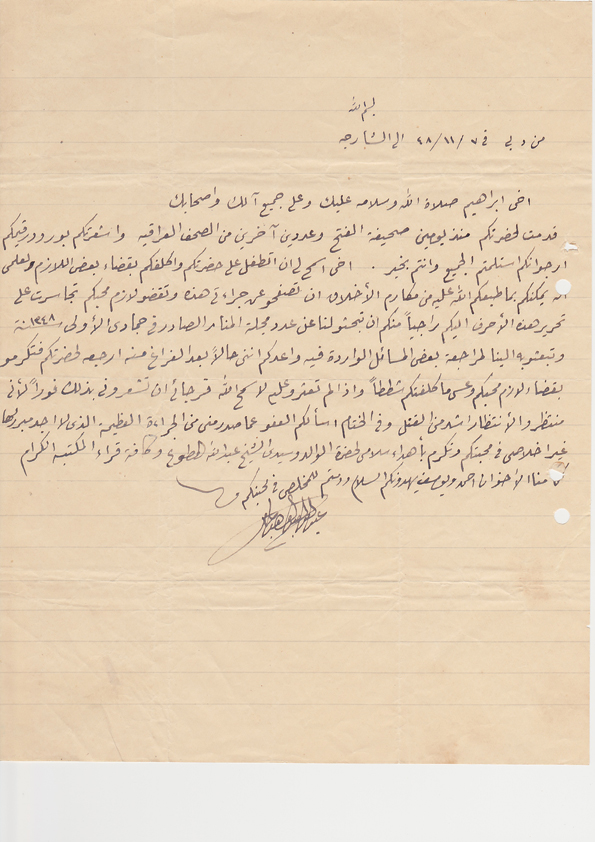 بسم الله
من دبي في ٧ / ١١ / ٤٨ الى الشارجه
اخى ابراهيم صلاة الله وسلامه عليك وعلى جميع آلك واصحابك
قدمت لحضرتكم منذ يومين صحيفة الفتح وعددين آخرين من الصحف العراقيه واشعرتكم بورود رقيمكم
ارجو انكم استلمتم الجميع وانتم بخير . اخى اسمح لى ان اتطفل على حضرتكم واكلفكم بقضاء بعض اللازم ولعلمى
انه يمكنكم بما طبعكم الله عليه من مكارم الأخلاق ان تصفحو عن جراءتى هذه وتقضو لازم محبكم تجاسرت على
تحرير هذه الأحرف اليكم راجياً منكم ان تبحثو لنا عن عدد مجلة المنار الصادر في جمادى الأولى سنة ١٣٤٨
وتبعثو به الينا لمراجعة بعض المسائل الواردة فيه واعدكم اننى حالاً بعد الفراغ منه ارجعه لحضرتكم فتكرمو
بقضاء لازم محبكم وعسى ما كلفتكم شططاً واذا لم تعثرو عليه لا سمح الله فرجائى ان تشعرونى بذلك فوراً لأنى
منتظر والأنتظار اشد من القتل وفى الختام اسألكم العفو عما صدر منى من الجراءة العظيمة الذى لا احد
غير اخلاصى فى محبتكم وتكرم بأهداء سلامى لحضرة الوالد وسيدى الشيخ عبدالله وكافة قراء المكتبه الكرام
كما منا الأخوان احمد ويوسف يهدونكم السلام ودمتم للمخلص فى محبتكم